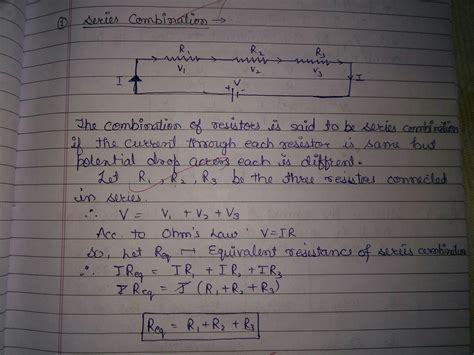 ① Series Combination →
R1 R2 R3
V1 V2 V3
I V I
The combination of resistors is said to be series combination
if the current through each resistor is same but
potential drop across each is diffrent.
Let R1, R2, R3 be the three resistors connected
in series.
∴ V = V1 + V2 + V3
Acc. to Ohm's Law: V=IR
So, Let Req → Equivalent resistance of series combination
∴ IReq = IR1 + IR2 + IR3
I Req = I (R1 + R2 + R3)
Req = R1 + R2 + R3